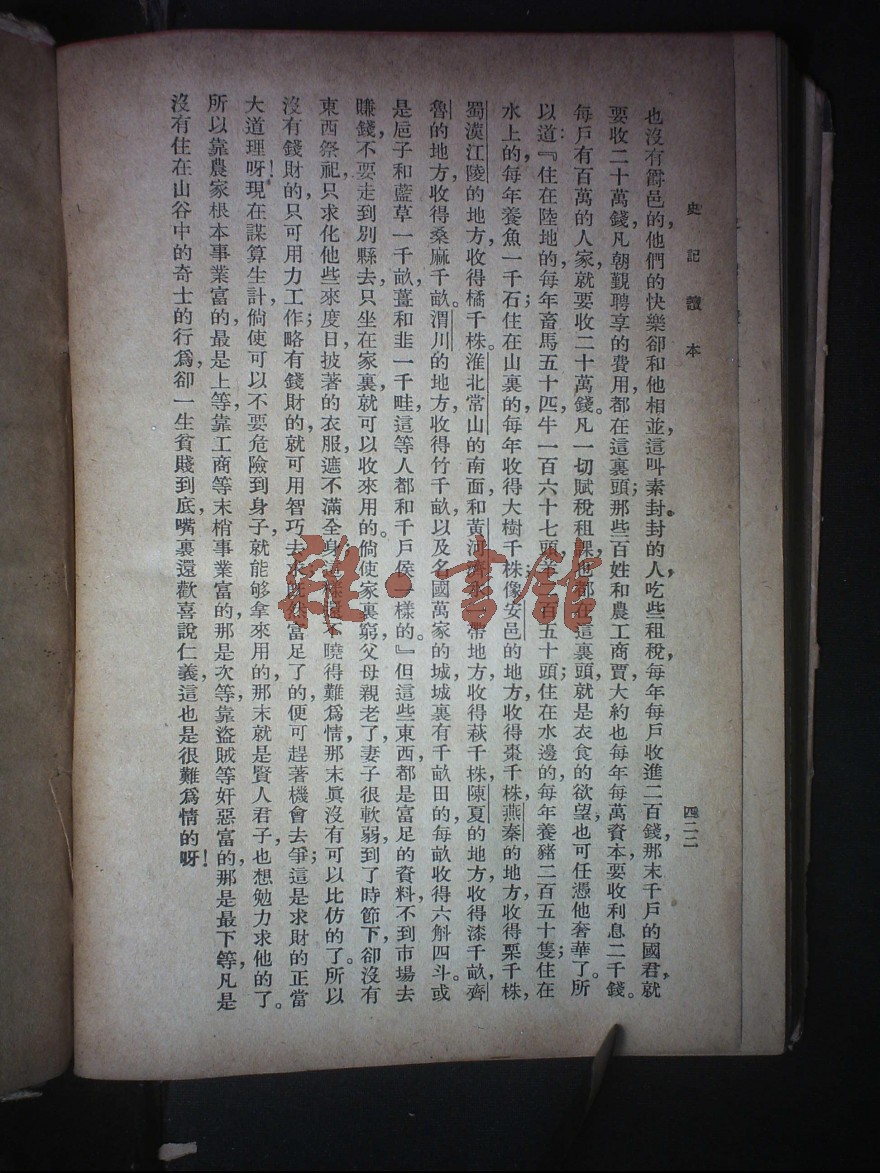 史記讀本
四二二
也沒有爵邑的，他們的快樂卻和他相並，這叫素封。封的人，吃些租稅，每年每戶收進二百錢，那末千戶的國君，就
要收二十萬錢，凡朝覲聘享的費用，都在這裏頭，那些百姓和農工商賈，大約也每年每萬資本，要收利息二千錢。
每戶有百萬的人家，就要收二十萬錢。凡一切賦稅租課，也都在這裏頭，就是衣食的欲望，也可任憑他奢華了。所
以道：『住在陸地的，每年畜馬五十匹，牛一百六十七頭，羊二百五十頭；住在水邊的，每年養豬二百五十隻；住在
水上的，每年養魚一千石；住在山裏的，每年收得大樹千株，像安邑的地方，收得棗千株，燕秦的地方，收得栗千株，
蜀漢江陵的地方，收得橘千株。淮北常山的南面，和黃河濟水一帶地方，收得萩千株，陳夏的地方，收得漆千畝，齊
魯的地方，收得桑麻千畝。渭川的地方，收得竹千畝，以及名國萬家的城，城裏有千畝田的，每畝收得六斛四斗。或
是巵子和藍草一千畝，薑和韭一千畦，這等人都和千戶侯一樣的。』但這些東西，都是富足的資料，不到市場去
賺錢，不要走到別縣去，只坐在家裏，就可以收來用的。倘使家裏窮，父母親老了，妻子很軟弱，到了時節下，卻沒有
東西祭祀，只求化他些來度日，披著的衣服，遮不滿全身，這樣還不曉得難爲情，那末眞沒有可以比仿的了。所以
沒有錢財的，只可用力工作；略有錢財的，就可用智巧去求；既然富足了的，便可趕著機會去爭；這是求財的正當
大道理呀！現在謀算生計，倘使可以不要危險到身子，就能够拿來用的，那末就是賢人君子，也想勉力求他的了。
所以靠農家根本事業富的，最是上等，靠工商等末梢事業富的，那是次等，靠盜賊等奸惡富的，那是最下等，凡是
沒有住在山谷中的奇士的行爲，卻一生貧賤到底，嘴裏還歡喜說仁義，這也是很難爲情的呀！
雜·書館